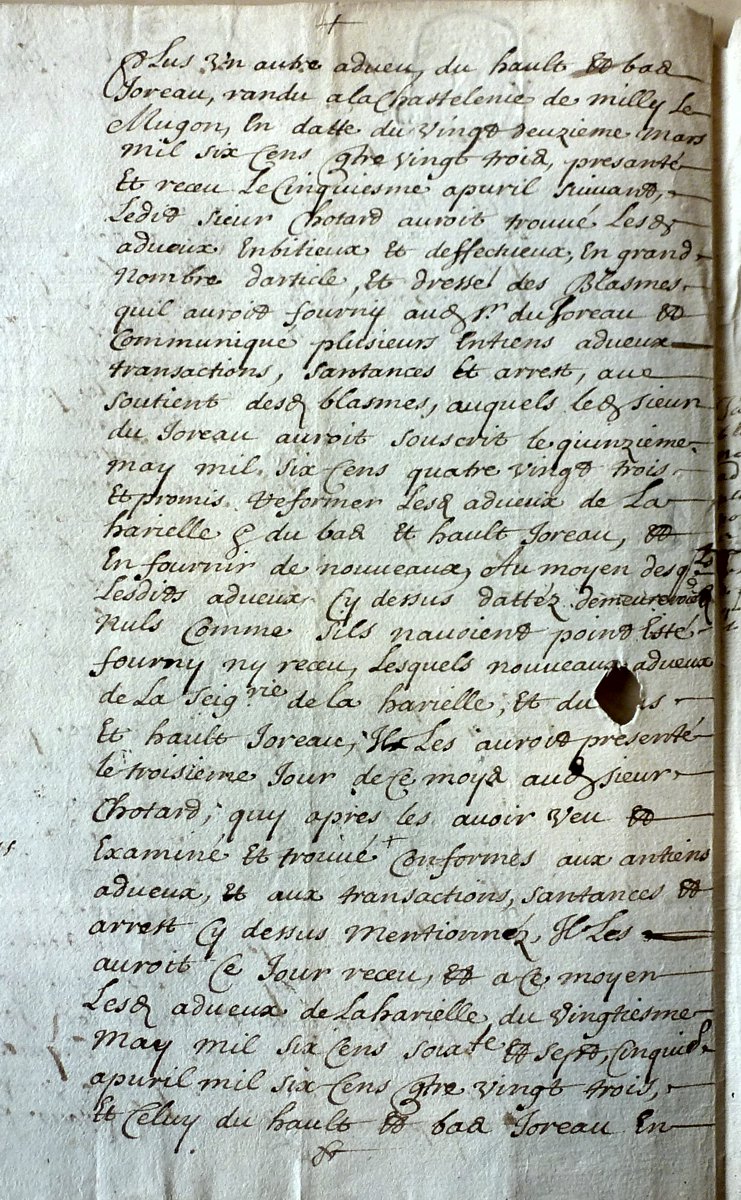 Plus un autre adveu, du hault et bas
Joreau, randu a la Chastelenie de milly Le
Mugon, En datte du vingt deuzieme mars
mil six Cens qtre vingt trois, presanté
Et receu Le Cinquiesme apuril suivant,
Ledit sieur Chotard auroit trouvé Lesd
adveux Enbitieux Et deffectieux, En grand
Nombre darticle, Et dressé des Blasmes
quil auroit fourny aud sr du Joreau et
Communiqué plusieurs Entiens adveux
transactions, santances Et arrest, au
soutient desd blasmes, auquels led sieur
du Joreau auroit souscrit le quinzieme
may mil six Cens quatre vingt trois
Et promis Reformer Lesd adveux de La
harielle & du bas Et hault Joreau, et
En fournir de nouveaux, Au moyen desq.ls
Lesdits adveux Cy dessus dattéz demeureroit
Nuls Comme sils navoient point Esté
fourny ny receu, Lesquels nouveaux adveux
de La seig.rie de la harielle, Et du bas
Et hault Joreau, Il Les auroit presenté
le troisieme Jour de Ce moys aud sieur
Chotard, quy apres les avoir veu et
Examiné Et trouvé + Conformes aux antiens
adveux, et aux transactions, santances et
arrest Cy dessus Mentionnéz, Il Les
auroit Ce Jour receu, et a Ce moyen
Lesd adveux de La harielle du vingtiesme
May mil six Cens soixa.te et sept, Cinquie.
apuril mil six Cens qtre vingt trois,
Et Celuy du hault et bas Joreau En